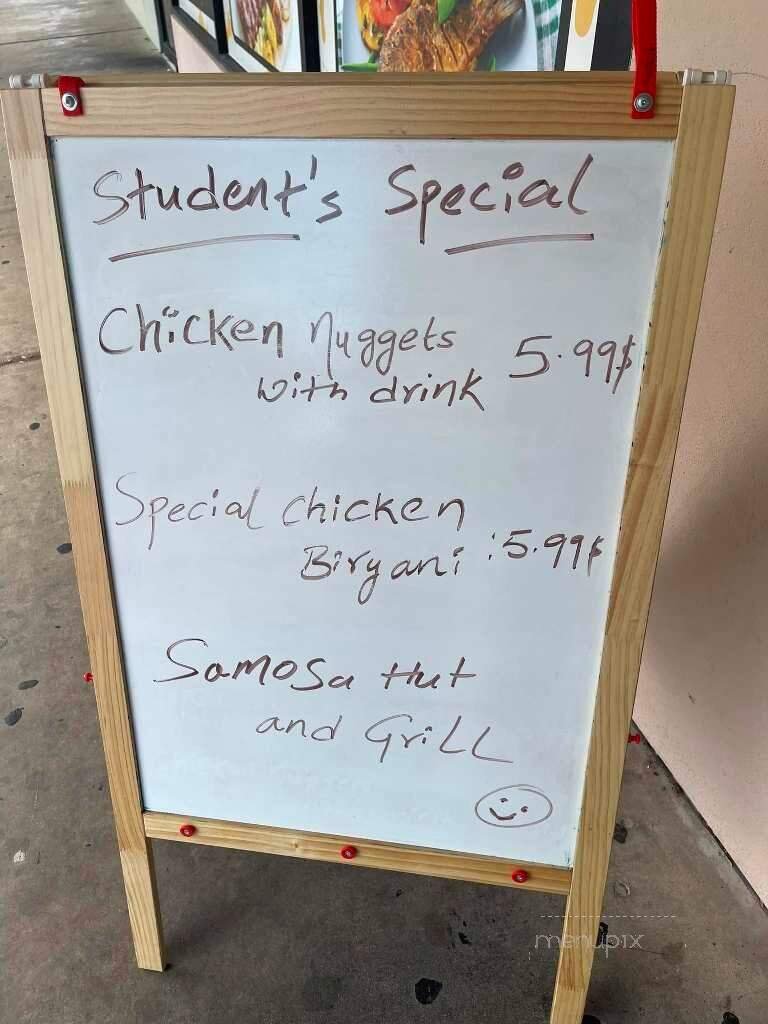 Student's Special
Chicken nuggets
with drink 5.99$
Special chicken
Biryani : 5.99$
Samosa Hut
and Grill
menupix